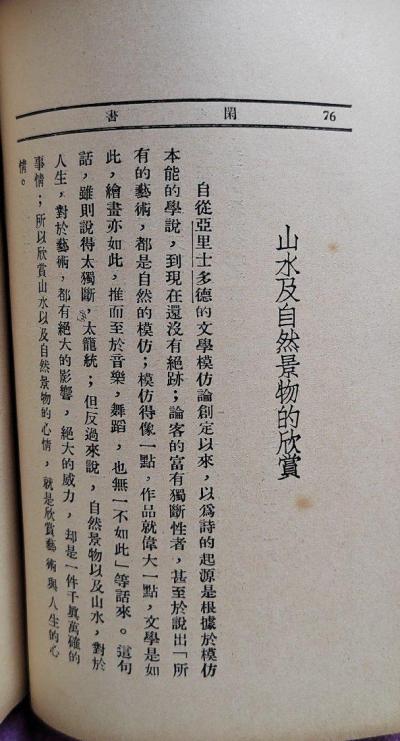 76
閑書
山水及自然景物的欣賞
自從亞里士多德的文學模仿論創定以來，以爲詩的起源是根據於模仿
本能的學說，到現在還沒有絕跡；論客的富有獨斷性者，甚至於說出「所
有的藝術，都是自然的模仿；模仿得像一點，作品就偉大一點，文學是如
此，繪畫亦如此，推而至於音樂，舞蹈，也無一不如此」等話來。這句
話，雖則說得太獨斷，太籠統；但反過來說，自然景物以及山水，對於
人生，對於藝術，都有絕大的影響，絕大的威力，却是一件千眞萬確的
事情；所以欣賞山水以及自然景物的心情，就是欣賞藝術與人生的心
情。